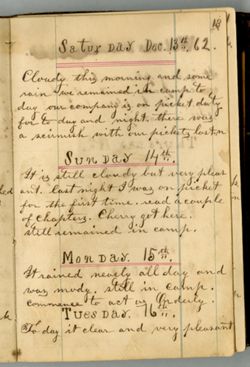 18
Saturday Dec. 13th, 62.
Cloudy this morning and some
rain we remained in camp to
day our company is on picket duty
for to day and night. there was
a scirmish with our pickets last n
Sunday 14th.
It is still cloudy but very pleas
ant. last night I was on picket
for the first time. read a couple
of chapters. Cherry got here.
still remained in camp.
Monday 15th.
It rained nearly all day and
was mudy. still in camp.
commence to act as Orderly.
Tuesday. 16th.
To day it clear and very pleasant